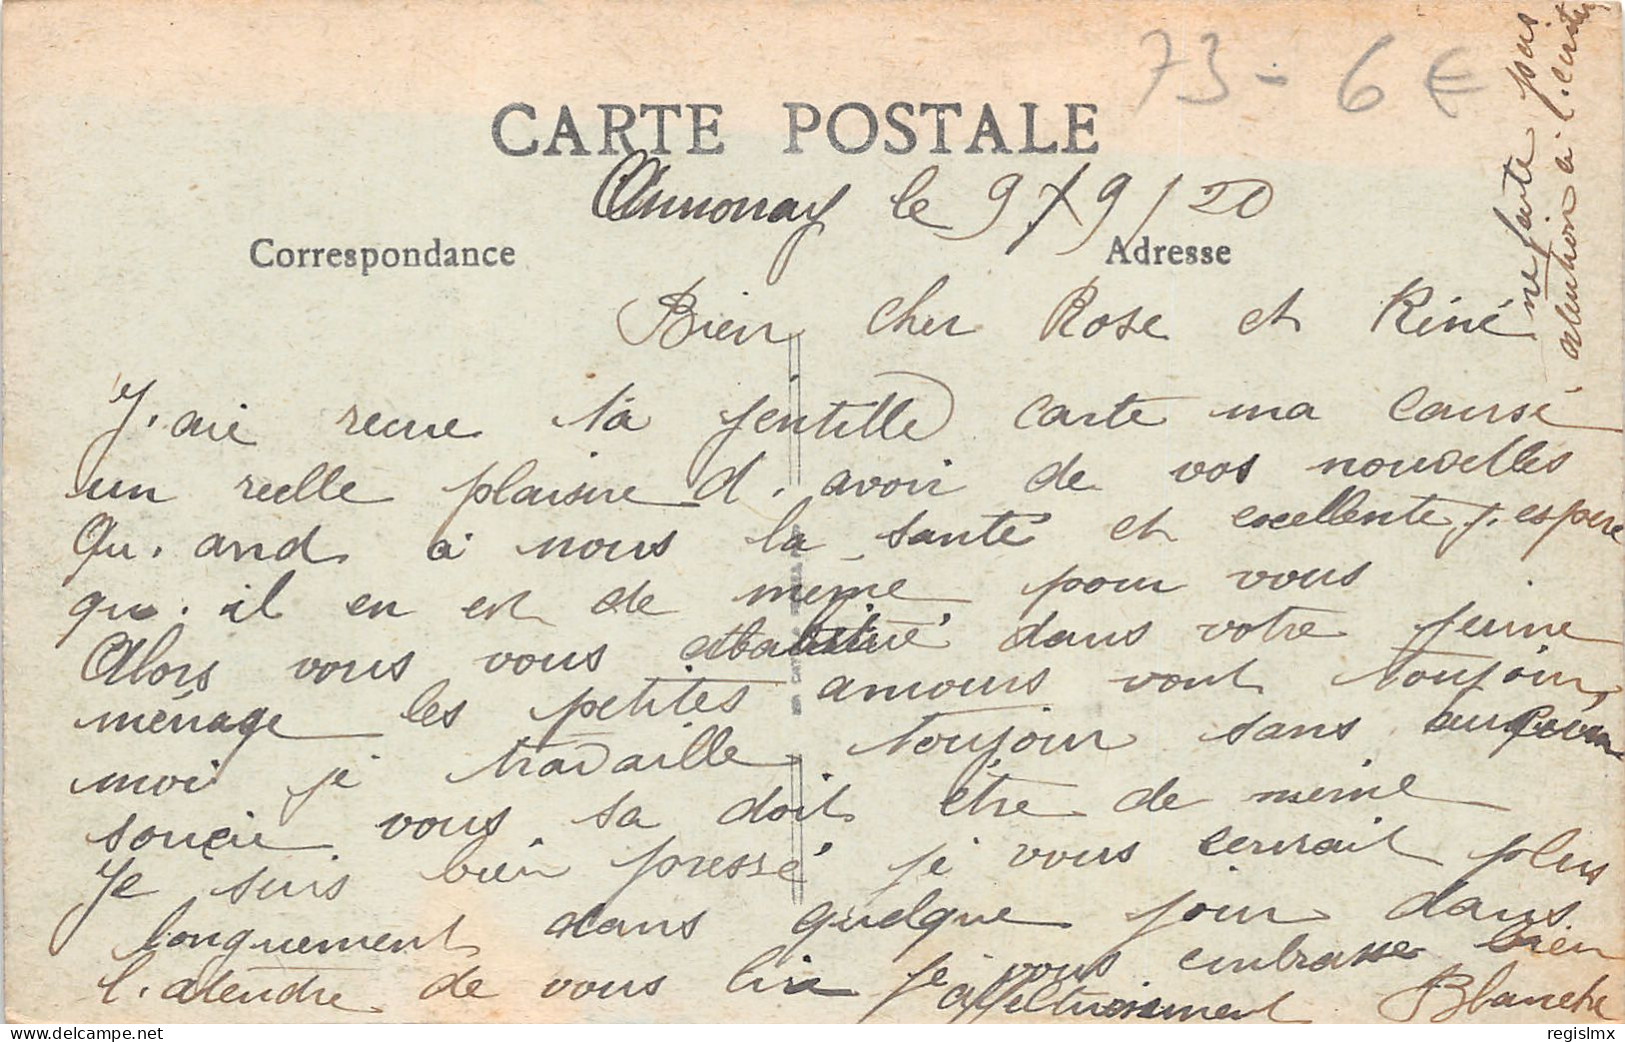 73 - 6 €
CARTE POSTALE
Annonay le 9/9/20
Correspondance
Adresse
Bien cher Rose et Réné
J. ai recue ta jentille carte ma causé
un reelle plaisire d. avoir de vos nouvelles
Qu. and a nous la santé et excellente j. espere
qu. il en et de même pour vous
Alors vous vous abatitué dans votre jeune
ménage les petites amours vont toujour
moi je travaille toujour sans aucun
soucie vous sa doit être de même
Je suis bien pressé je vous écrirait plus
longuement dans quelque jour dans
l. atendre de vous lire je vous embrasse bien
affectueusement Blanche
ne faite pas
atention a l.
regislmx
delcampe.net